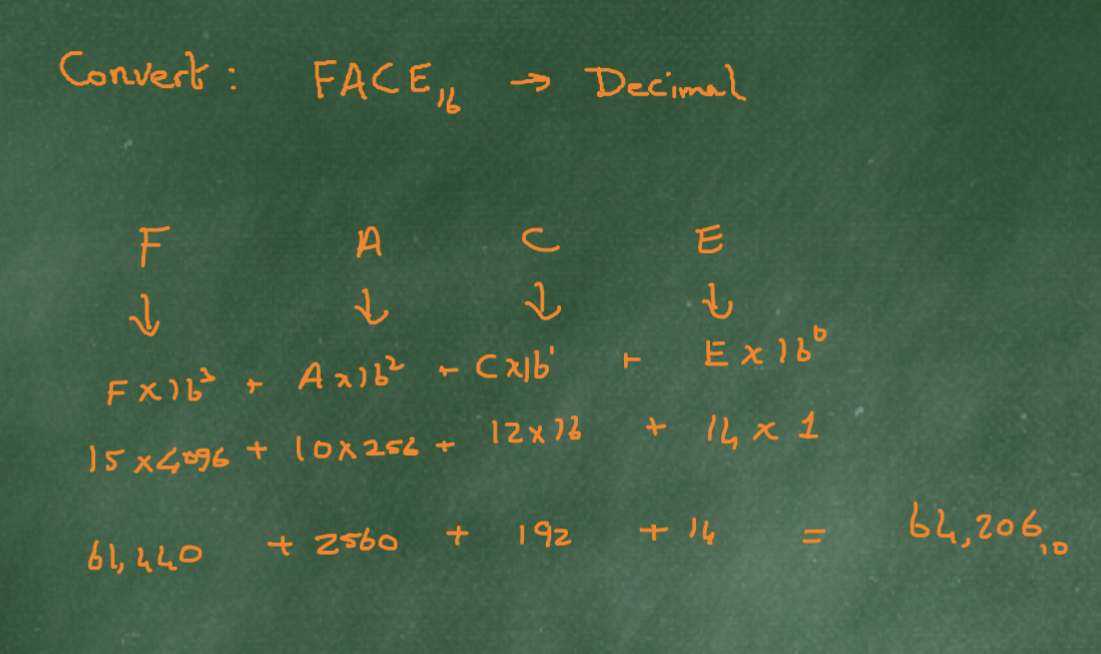 Convert : FACE₁₆ → Decimal
F A C E
↓ ↓ ↓ ↓
F x 16³ + A x 16² + C x 16¹ + E x 16⁰
15 x 4096 + 10 x 256 + 12 x 16 + 14 x 1
61,440 + 2560 + 192 + 14 = 64,206₁₀